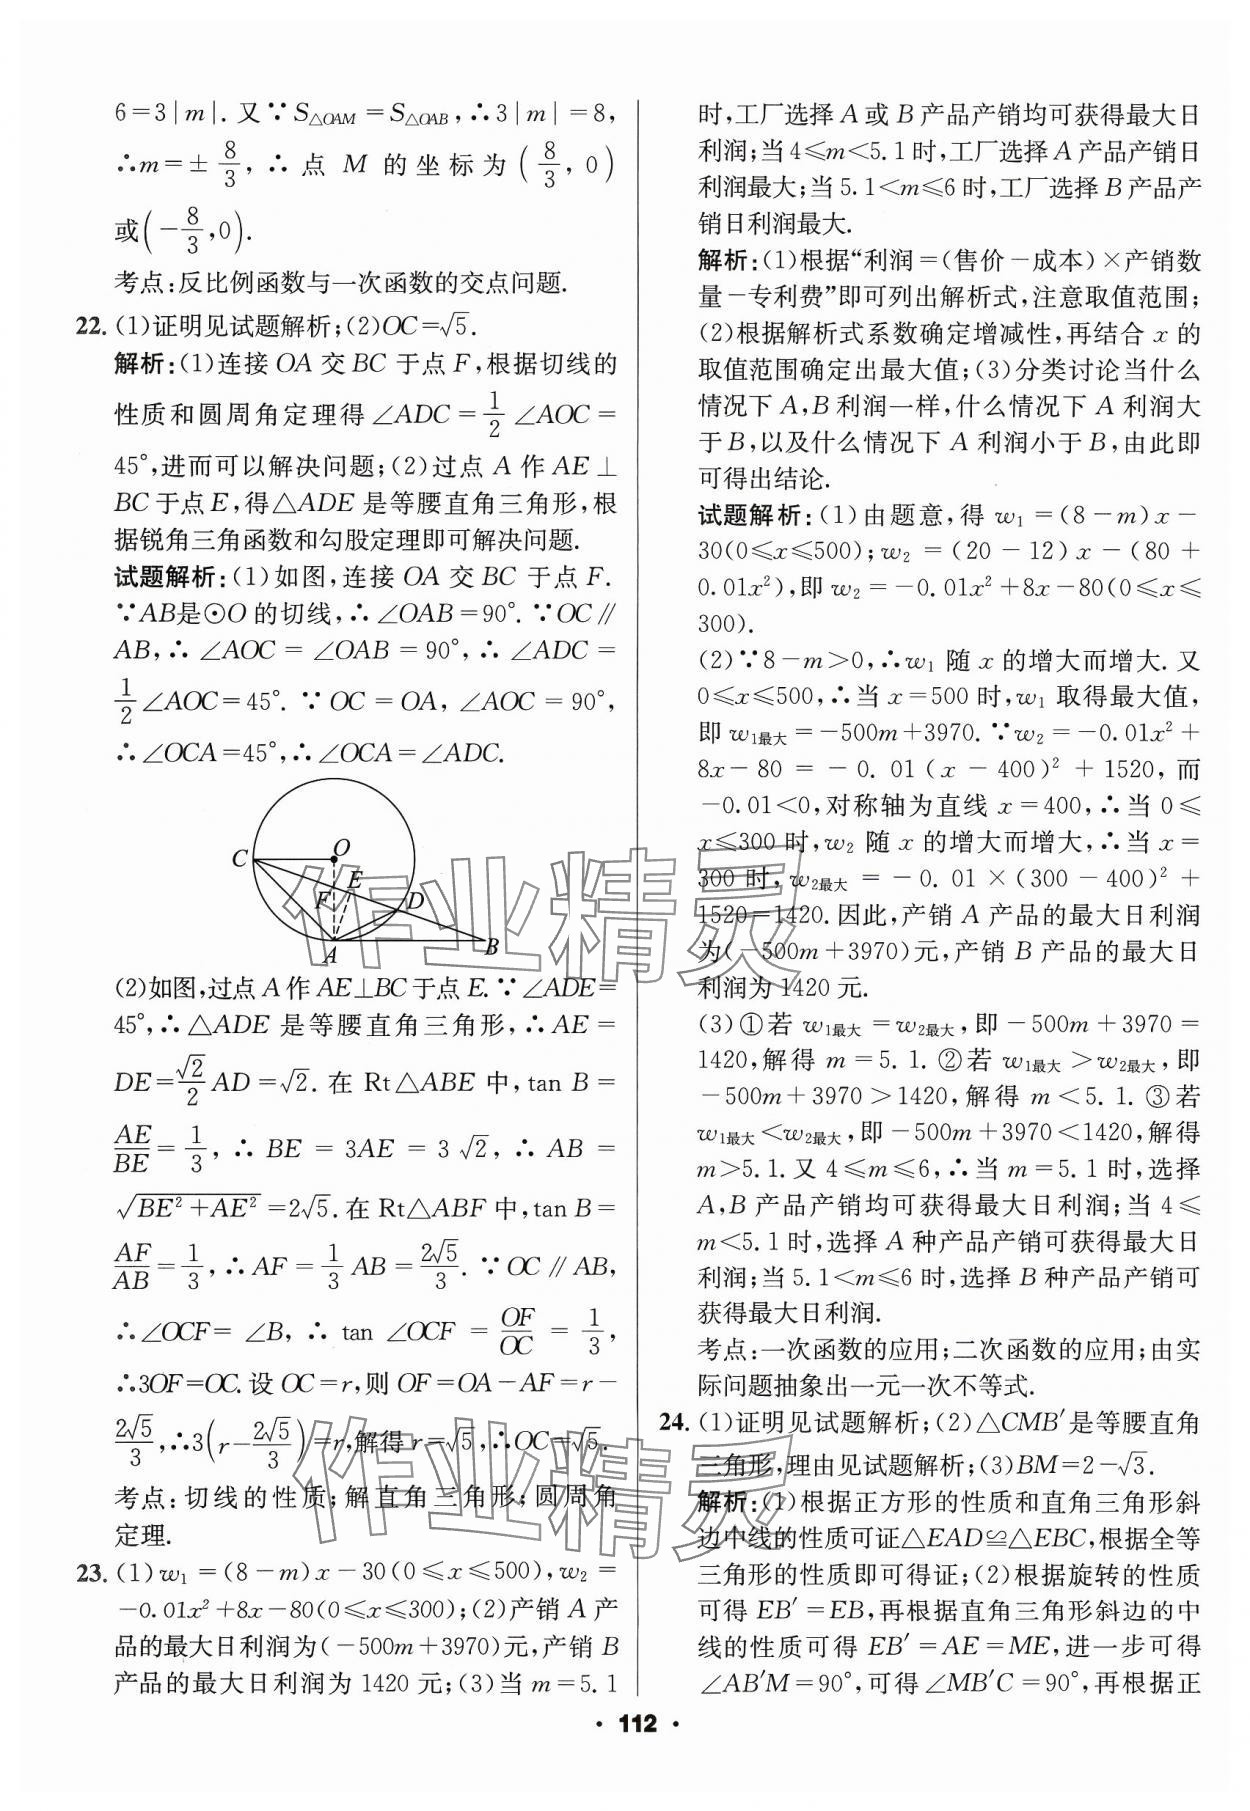 6=3|m|. 又∵S△OAM=S△OAB,∴3|m|=8,
∴m=±8/3,∴点 M 的坐标为(8/3,0)
或(-8/3,0).
考点:反比例函数与一次函数的交点问题.
22. (1)证明见试题解析;(2)OC=√5.
解析:(1)连接 OA 交 BC 于点 F,根据切线的
性质和圆周角定理得∠ADC=1/2∠AOC=
45°,进而可以解决问题;(2)过点 A 作 AE⊥
BC于点E,得△ADE 是等腰直角三角形,根
据锐角三角函数和勾股定理即可解决问题.
试题解析:(1)如图,连接 OA 交 BC 于点 F.
∵AB是⊙O 的切线,∴∠OAB=90°. ∵OC∥
AB,∴∠AOC=∠OAB=90°,∴∠ADC=
1/2∠AOC=45°. ∵OC=OA,∠AOC=90°,
∴∠OCA=45°,∴∠OCA=∠ADC.
C O E F D A B
(2)如图,过点A作AE⊥BC于点E. ∵∠ADE=
45°,∴△ADE 是等腰直角三角形,∴AE=
DE=√2/2 AD=√2. 在 Rt△ABE 中,tan B=
AE/BE=1/3,∴BE=3AE=3√2,∴AB=
√(BE²+AE²)=2√5. 在Rt△ABF 中,tan B=
AF/AB=1/3,∴AF=1/3 AB=2√5/3. ∵OC∥AB,
∴∠OCF=∠B,∴tan∠OCF=OF/OC=1/3,
∴3OF=OC. 设 OC=r,则 OF=OA-AF=r-
2√5/3,∴3(r-2√5/3)=r,解得 r=√5,∴OC=√5.
考点:切线的性质;解直角三角形;圆周角
定理.
23. (1)w₁=(8-m)x-30(0≤x≤500),w₂=
-0.01x²+8x-80(0≤x≤300);(2)产销 A 产
品的最大日利润为(-500m+3970)元,产销 B
产品的最大日利润为 1420 元;(3)当 m=5.1
时,工厂选择 A 或 B 产品产销均可获得最大日
利润;当 4≤m<5.1 时,工厂选择 A 产品产销日
利润最大;当 5.1<m≤6 时,工厂选择 B 产品产
销日利润最大.
解析:(1)根据“利润=(售价-成本)×产销数
量-专利费”即可列出解析式,注意取值范围;
(2)根据解析式系数确定增减性,再结合 x 的
取值范围确定出最大值;(3)分类讨论当什么
情况下 A,B 利润一样,什么情况下 A 利润大
于 B,以及什么情况下 A 利润小于 B,由此即
可得出结论.
试题解析:(1)由题意,得 w₁=(8-m)x-
30(0≤x≤500);w₂=(20-12)x-(80+
0.01x²),即 w₂=-0.01x²+8x-80(0≤x≤
300).
(2)∵8-m>0,∴w₁ 随 x 的增大而增大. 又
0≤x≤500,∴当 x=500 时,w₁ 取得最大值,
即 w₁最大=-500m+3970. ∵w₂=-0.01x²+
8x-80=-0.01(x-400)²+1520,而
-0.01<0,对称轴为直线 x=400,∴当 0≤
x≤300 时,w₂ 随 x 的增大而增大,∴当 x=
300 时,w₂最大=-0.01×(300-400)²+
1520=1420. 因此,产销 A 产品的最大日利润
为(-500m+3970)元,产销 B 产品的最大日
利润为 1420 元.
(3)①若 w₁最大=w₂最大,即-500m+3970=
1420,解得 m=5.1. ②若 w₁最大>w₂最大,即
-500m+3970>1420,解得 m<5.1. ③若
w₁最大<w₂最大,即-500m+3970<1420,解得
m>5.1. 又 4≤m≤6,∴当 m=5.1 时,选择
A,B 产品产销均可获得最大日利润;当 4≤
m<5.1 时,选择 A 种产品产销可获得最大日
利润;当 5.1<m≤6 时,选择 B 种产品产销可
获得最大日利润.
考点:一次函数的应用;二次函数的应用;由实
际问题抽象出一元一次不等式.
24. (1)证明见试题解析;(2)△CMB′是等腰直角
三角形,理由见试题解析;(3)BM=2-√3.
解析:(1)根据正方形的性质和直角三角形斜
边中线的性质可证△EAD≌△EBC,根据全等
三角形的性质即可得证;(2)根据旋转的性质
可得 EB′=EB,再根据直角三角形斜边的中
线的性质可得 EB′=AE=ME,进一步可得
∠AB′M=90°,可得∠MB′C=90°,再根据正
· 112 ·
作业精灵
作业精灵